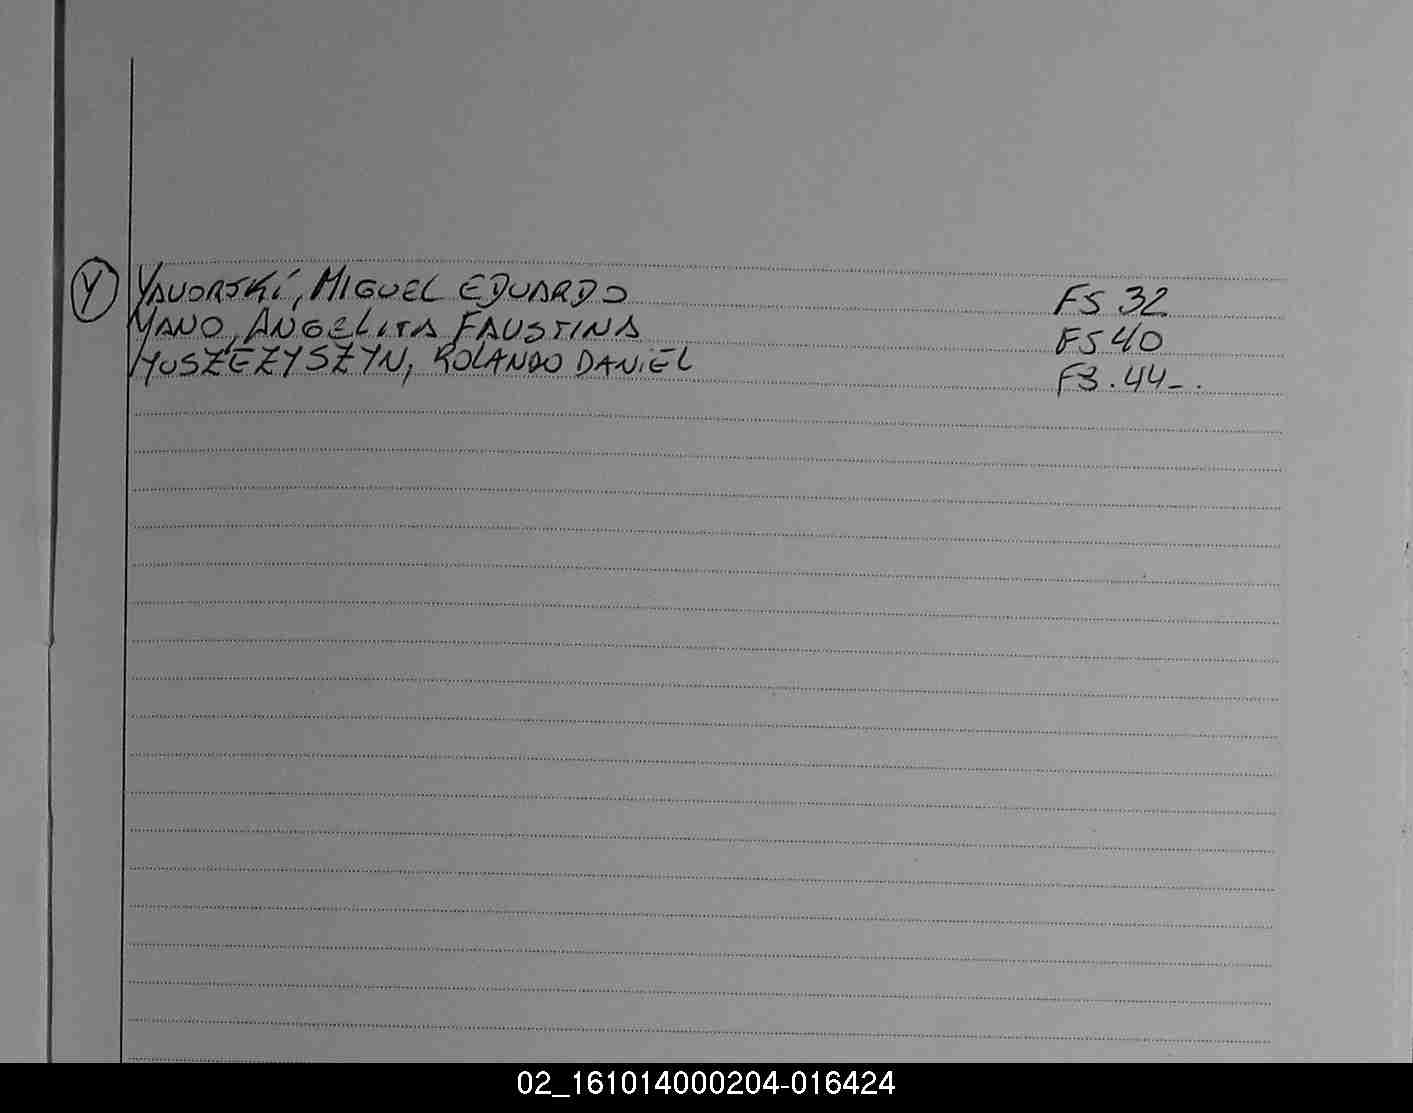 Y YAVORSKÍ, MIGUEL EDUARDO FS 32
YANO, ANGELITA FAUSTINA FS 40
YUSZEZYSZYN, ROLANDO DANIEL FS. 44_.
02_161014000204-016424